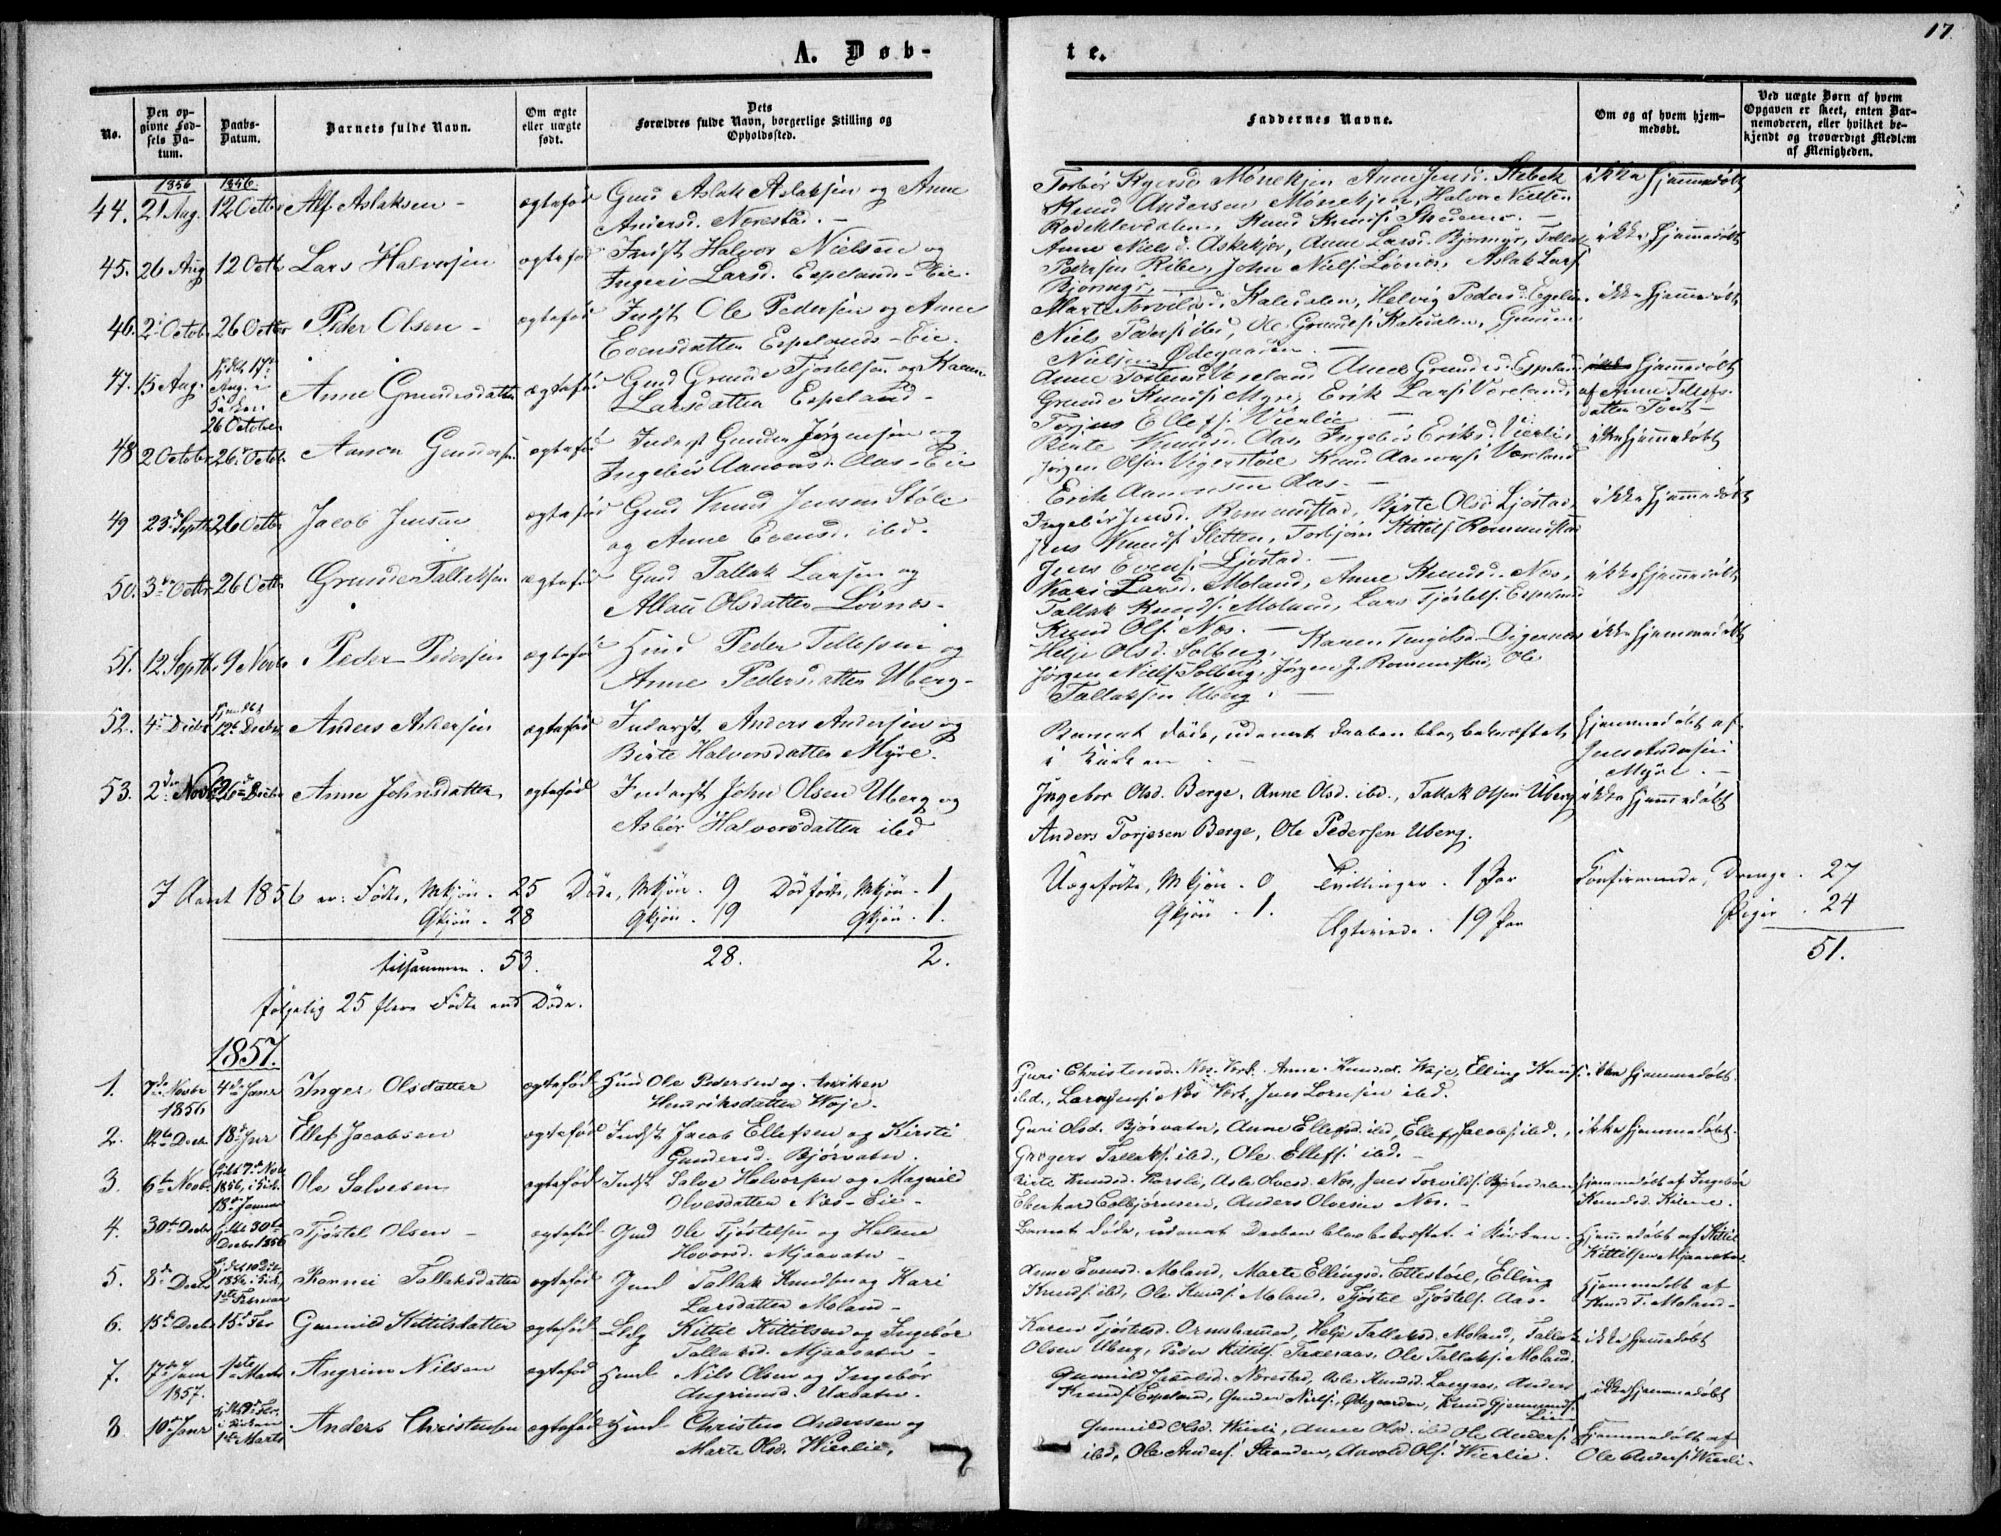 17.
A. Døb-
te.
No.
Den op-
givne Fød-
sels Da-
tum.
Daabs-
Datum.
Barnets fulde Navn.
Om ægte
eller uægte
født.
Dets
Forældres fulde Navn, borgerlige Stilling og
Opholdssted.
Faddernes Navne.
Om og af hvem hjem-
medøbt.
Ved uægte Børn af hvem
Opgaven er skeet, enten Bar-
nemoderen, eller hvilket be-
kjendt og troværdigt Medlem
af Menigheden.
1856 1856.
44. 21 Aug. 12 Octbr Alf Aslaksen - ægtefød Gmd Aslak Aslaksen og Anne
Andersd. Norestad. -
Knud Andersen Mønekjen, Halvor Nielsen
ikke hjemmedøbt
45. 26 Aug 12 Octb Lars Halvorsen ægtefød Indst Halvor Nielsen og
Ingeri Larsd. Espelands-Eie.
Anne Nielsd. Askekjær, Anne Larsd. Bjørmyr,
Pedersen Ribe, John Niels. Løvnæs, Aslak Lars.
Bjørmyr. -
ikke hjemmedøbt
46. 2 Octob 26 Octbr Peder Olsen - ægtefød Indst Ole Pedersen og Anne
Evensdatter Espelands-Eie.
Niels Peders. ibd, Ole Grunds. Kateralen, Gunder
Nielsen Ødegaarden -
ikke hjemmedøbt
47. 15 Aug. Hjdbt 17de
Aug. i
Kirken
26 October
Anne Grundesdatter ægtefød Gmd Grunde Tjostelsen og Karen
Larsdatter Espeland -
Grunde Knuds. Myre, Erik Lars. Voreland,
Torjus Ellefs. Vierlie -
hjemmedøbt
af Anne Tellefs-
datter Tvet -
48 2 October 26. Octob. Aanon Gunders. ægtefød Inderst Gunder Jørgensen og
Ingebør Aanonsd. Aas-Eie
Birte Knudsd. Aas, Ingebør Eriksd. Vierlie,
Jørgen Olsen Vigerstøel Knud Aanons. Voreland
Erik Aanonsen Aas. -
ikke hjemmedøbt
49 23d. Septb 26 Octbr Jacob Jensen ægtefød Gmd Knud Jensen Støle
og Anne Evensd. ibd.
Ingebør Jensd. Rommustad, Birte Olsd. Ljøstad,
Jens Knuds. Sletten, Torbjørn Kittils. Rommustad
Jens Evens. Ljøstad. -
ikke hjemmedøbt
50. 3die Octbr 26 Octb Grunde Tallaksen ægtefød Gmd Tallak Larsen og
Olsdatter Løvnæs.
Kari Larsd. Moland, Anne Knudsd. Næs,
Tallak Knuds. Moland, Lars Tjøstels. Espeland
Knud Ols. Næs. -
ikke hjemmedøbt
51. 12 Septb 9 Novb Peder Pedersen ægtefød Hmd Peder Tellefsen og
Anne Pedersdatter Uberg.
Helje Olsd. Solberg, Karen Digernæs
Jørgen Niels. Solberg, Jørgen J. Rommustad, Ole
Tallaksen Uberg. -
ikke hjemmedøbt
52. 4de Decbr 12te Decbr Anders Andersen ægtefød Inderst Anders Andersen og
Birte Halvorsdatter Myre.
Barnet døde, udenat Daaben blev bekræftet
i Kirken
hjemmedøbt af
Jens Andersen
Myre. -
53. 2den Novb 26de Decbr Anne Johnsdatter ægtefød Inderst John Olsen Uberg og
Asbør Halvorsdatter ibd
Ingebor Olsd. Berge, Anne Olsd. ibd., Tallak Olsen Uberg
Anders Torjesen Berge, Ole Pedersen Uberg.
ikke hjemmedøbt
I Aaret 1856 er: Fødte, Mkjøn. 25 Døde, Mkjøn. 9 Dødfødte, Mkjøn. 1
Qkjøn. 28 Qkjøn. 19 Qkjøn. 1.
tilsammen. 53. 28. 2.
følgelig 25 flere Fødte end Døde.
Uægefødte, Mkjøn. 0 Tvillinger. 1 Par Confirmerede, Drenge. 27
Qkjøn. 1. Ægteviede. 19 Par Piger. 24
51.
1857.
1. 7de Novbr
1856
4de Janr Inger Olsdatter ægtefød Hmd Ole Pedersen og Aniken
Henriksdatter Woje.
Guri Christensd. Næs Verk. Anne Knudsd. Woje, Elling Knuds.
ibd., Lars Jens. Næs Verk, Jens Lornsen ibd.
ikke hjemmedøbt.
2. 12te Decb. 18de Janr Ellef Jacobsen ægtefød Indst Jacob Ellefsen og Kirsti
Gundersd. Bjorvatn.
Guri Olsd. Bjorvatn, Anne Ellefsd. ibd, Ellef Jacobs. ibd.,
Gregers Tallaks. ibd., Ole Ellefs. ibd. -
ikke hjemmedøbt.
3. 6te Novb. Hjdbt 7de Nov.
1856, i Kirk.
18de Januar
Ole Salvesen ægtefød Indst Salve Halvorsen og Magnild
Olvesdatter Næs-Eie -
Birte Knudsd. Harsli, Asle Olvesd. Næs, Jens Torvilds. Bjørndalen,
Eberhard Colbjørnsen, Anders Olvesen Næs. -
hjemmedøbt af Ingebør
Knudsd.
4. 30te Decbr Hjdbt 30te
Decbr 1856
Tjøstel Olsen - ægtefød Gmd Ole Tjøstelsen og Helene
Hovorsd. Mjaavatn -
Barnet døde, udenat Daaben blev bekræftet i Kirken.
hjemmedøbt af Kittil
Kittilsen Mjaavatn
5. 8de Decb. Hjdbt 10 Decb.
1856, i Kirk,
1ste Februar
Ronnei Tallaksdatter ægtefød Gmd Tallak Knudsen og Kari
Larsdatter Moland -
Anne Evensd. Moland, Marte Ellingsd. Ettestøel, Elling
Knuds. ibd, Ole Knuds. Moland, Tjøstel Tjøstels. Aas.
hjemmedøbt af
Knud T. Moland -
6. 18de Decbr 15de Fbr Gunnild Kittilsdatter ægtefød Kittil Kittilsen og Ingebør
Tallaksd. Mjaavatn -
Karen Tjøstelsd. Ormshammer, Helje Tallaksd. Moland, Tallak
Olsen Uberg, Peder Kittils. Taxeraas, Ole Tallaks. Moland.
ikke hjemmedøbt
7. 17de Janr
1857.
1ste Marts Angrim Nilsen ægtefød Hmd Nils Olsen og Ingebør
Angrimsd.
Gunnild Jacobsd. Norestad, Asle Knudsd. Langaas, Anders
Knuds. Espeland, Gunder Niels. Ødegaarden, Knud Gjermunds.
Lien
ikke hjemmedøbt
8 10de Janr
i Kirken
1ste Marts
Anders Christensen ægtefød Hmd Christen Andersen og
Marte Olsd. Wierlie.
Gunnild Olsd. Wierli, Anne Olsd. ibd Ole Anders.
ibd, Ole Anders. Stranden, Aavold Ols. Wierlie.
hjemmedøbt af
Ole Anders. Wierli.